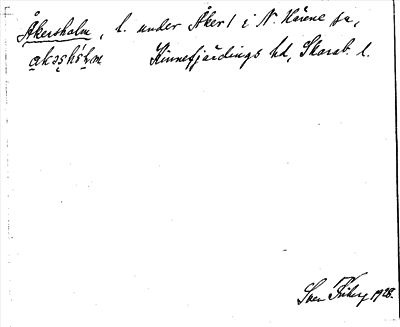 Åkersholm, l. under Åker 1 i N. Härene sn,
Kinnefjärdings hd, Skarab. l.
Sven Friberg 1928.